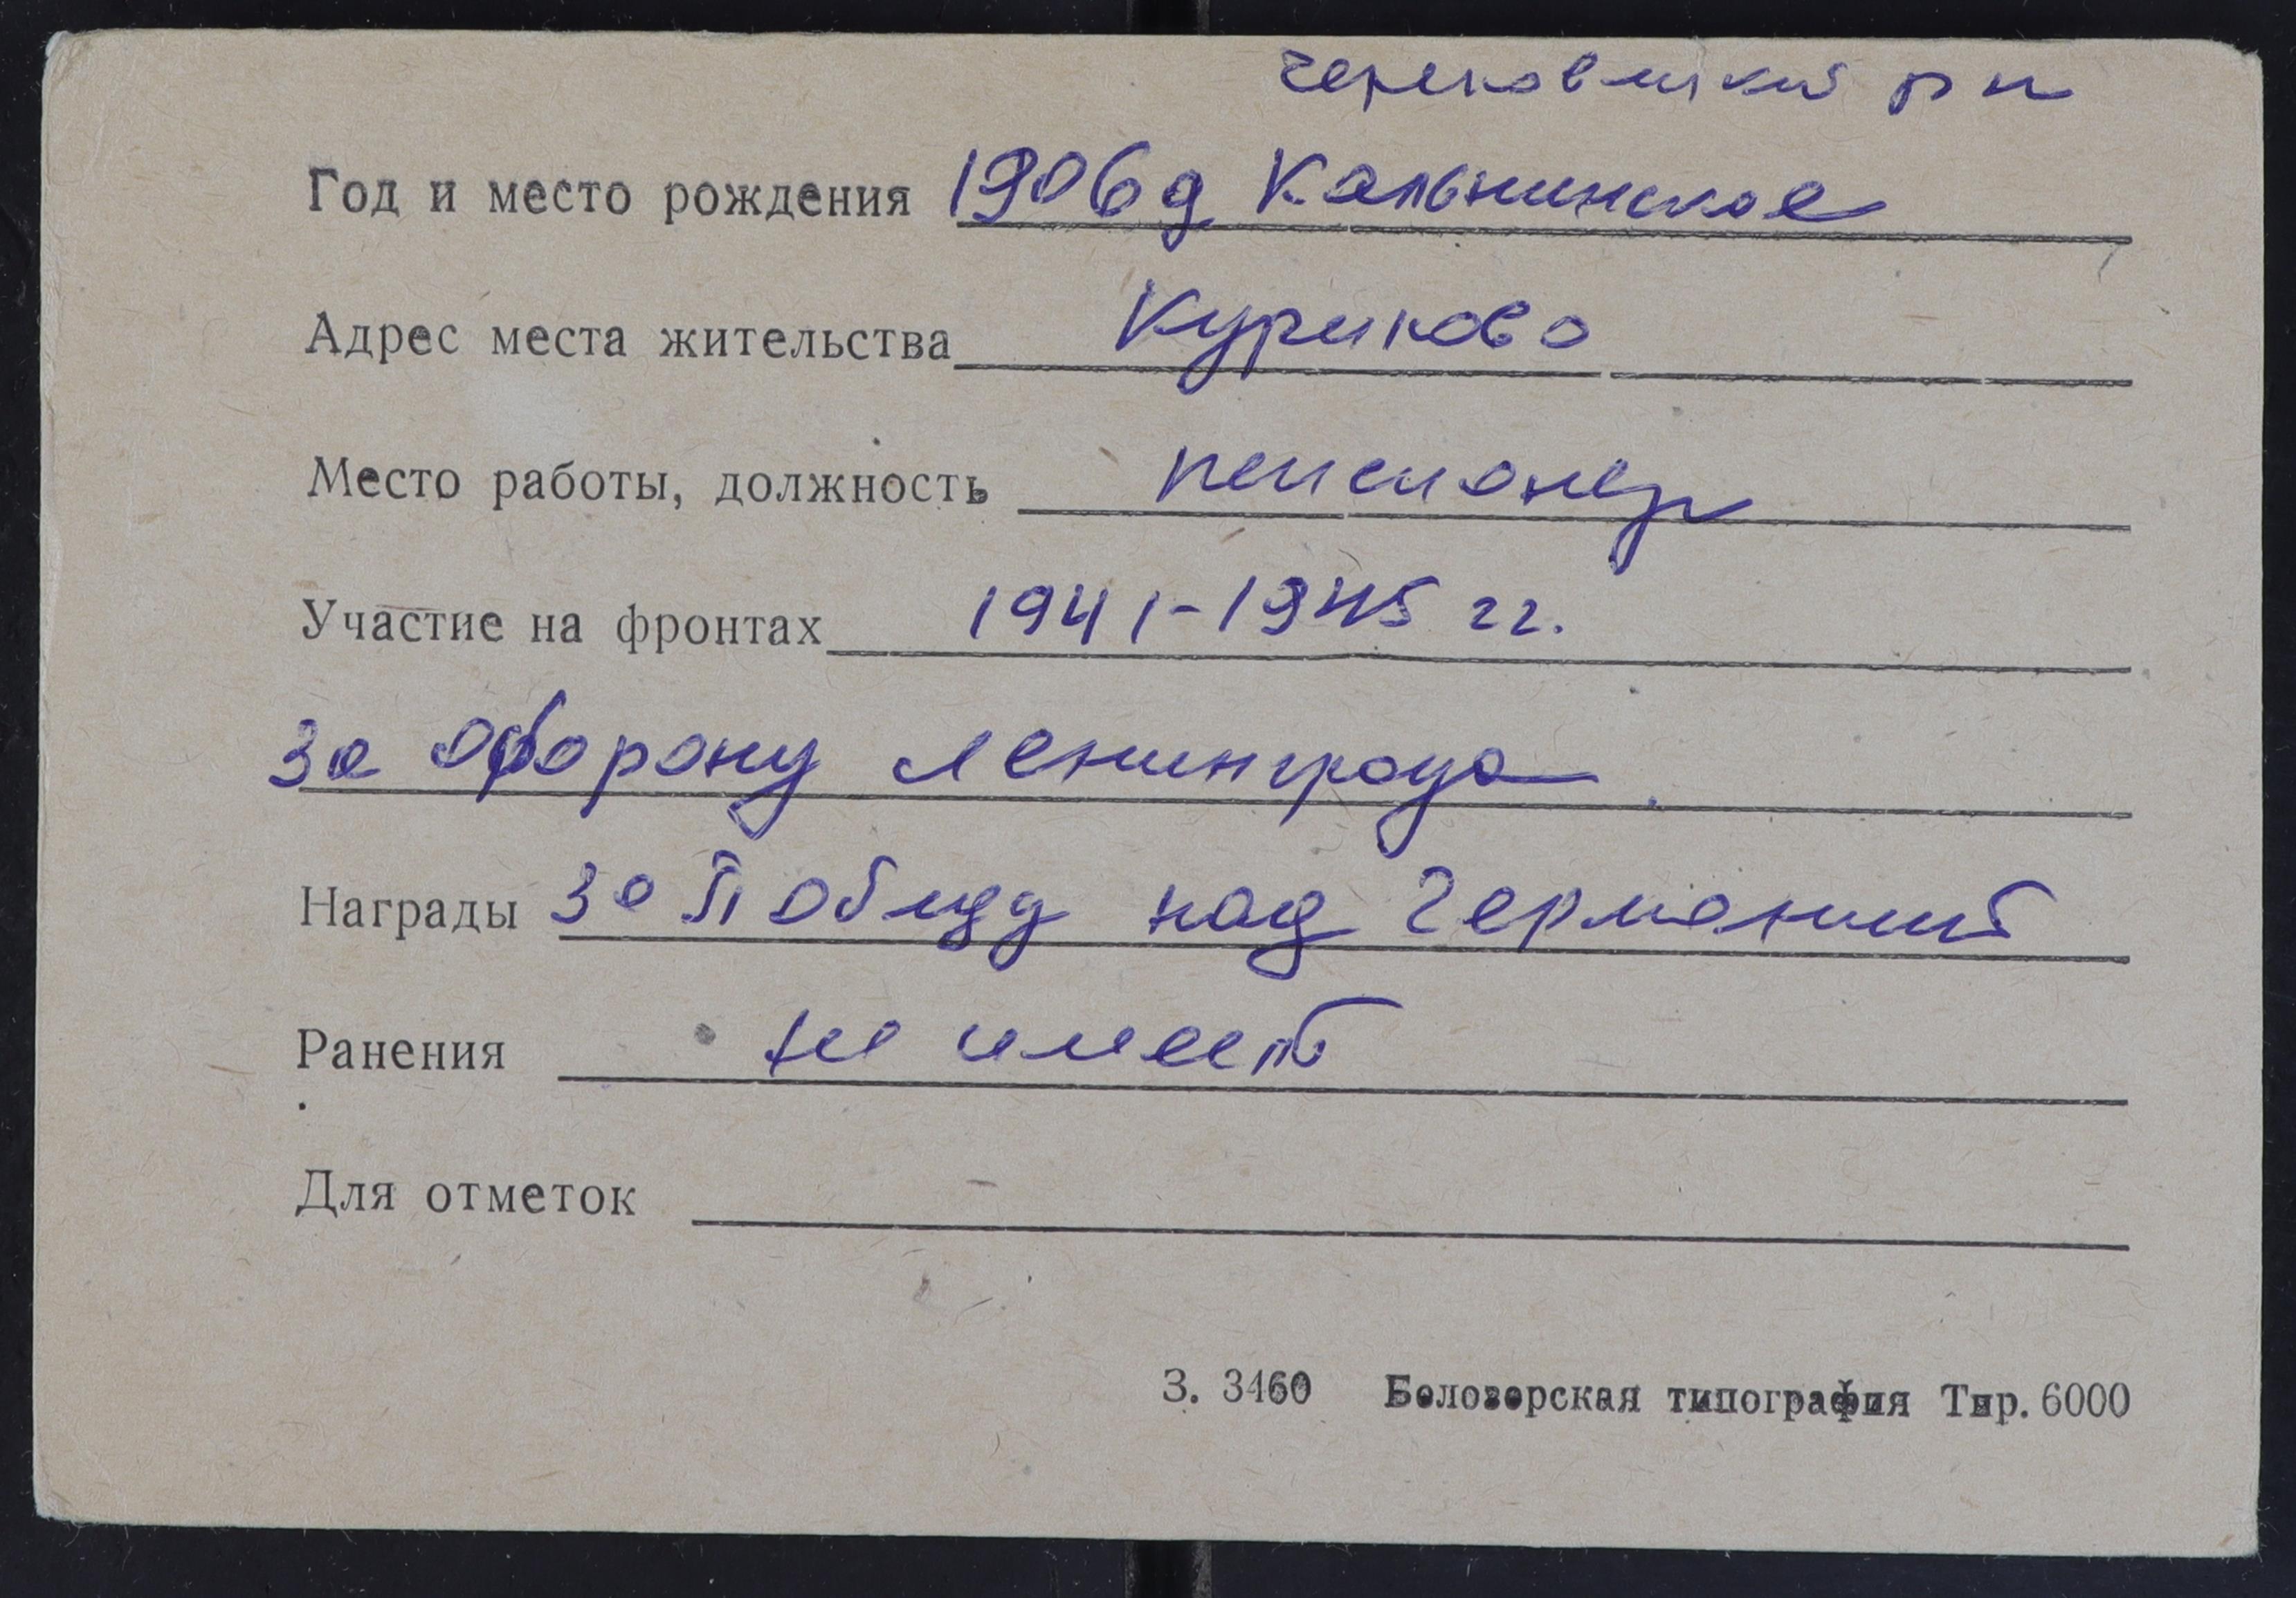 Череповецкий р н
Год и место рождения 1906 д Кальнинское
Адрес места жительства Куриково
Место работы, должность пенсионер
Участие на фронтах 1941-1945 гг.
За оборону Ленинграда
Награды За Победу над Германией
Ранения не имеет
Для отметок
З. 3460 Белозерская типография Тир. 6000